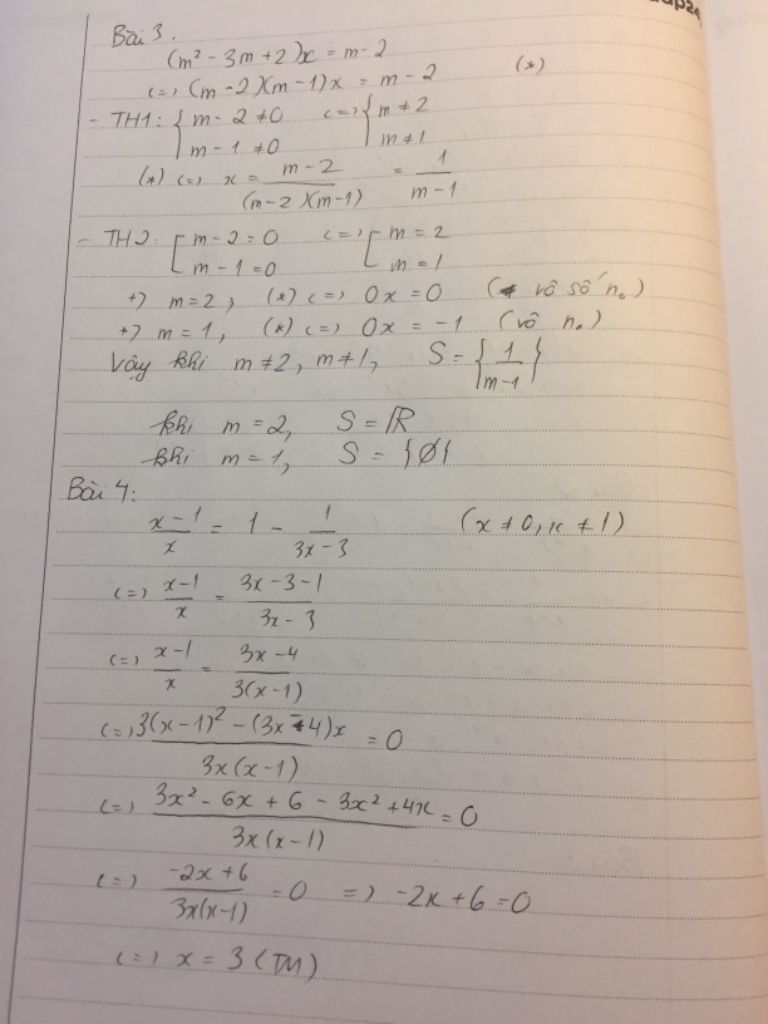 Bài 3.
(m² - 3m + 2)x = m - 2
<=> (m - 2)(m - 1)x = m - 2 (*)
- TH1: { m - 2 ≠ 0 <=> { m ≠ 2
m - 1 ≠ 0 m ≠ 1
(*) <=> x = m - 2 / (m - 2)(m - 1) = 1 / m - 1
- TH2: [ m - 2 = 0 <=> [ m = 2
m - 1 = 0 m = 1
+) m = 2, (*) <=> 0x = 0 (vô số n₀)
+) m = 1, (*) <=> 0x = -1 (vô n₀)
Vậy khi m ≠ 2, m ≠ 1, S = { 1 / m - 1 }
khi m = 2, S = ℝ
khi m = 1, S = {∅}
Bài 4:
x - 1 / x = 1 - 1 / 3x - 3 (x ≠ 0, x ≠ 1)
<=> x - 1 / x = 3x - 3 - 1 / 3x - 3
<=> x - 1 / x = 3x - 4 / 3(x - 1)
<=> 3(x - 1)² - (3x - 4)x / 3x(x - 1) = 0
<=> 3x² - 6x + 6 - 3x² + 4x / 3x(x - 1) = 0
<=> -2x + 6 / 3x(x - 1) = 0 => -2x + 6 = 0
<=> x = 3 (TM)